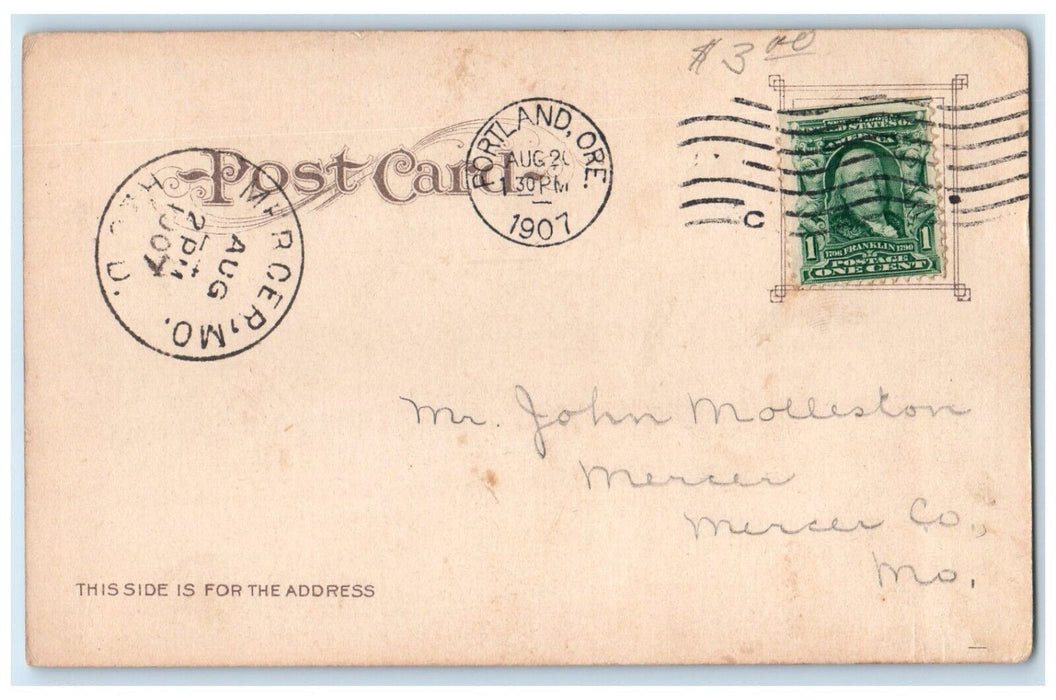 $3.00
Post Card
PORTLAND, ORE.
AUG 20
1 30 PM
1907
C
MERCER, MO.
AUG
2 PM
1907
1 1
1706 FRANKLIN 1790
POSTAGE
ONE CENT
Mr. John Molleston
Mercer
Mercer Co.,
Mo.
THIS SIDE IS FOR THE ADDRESS